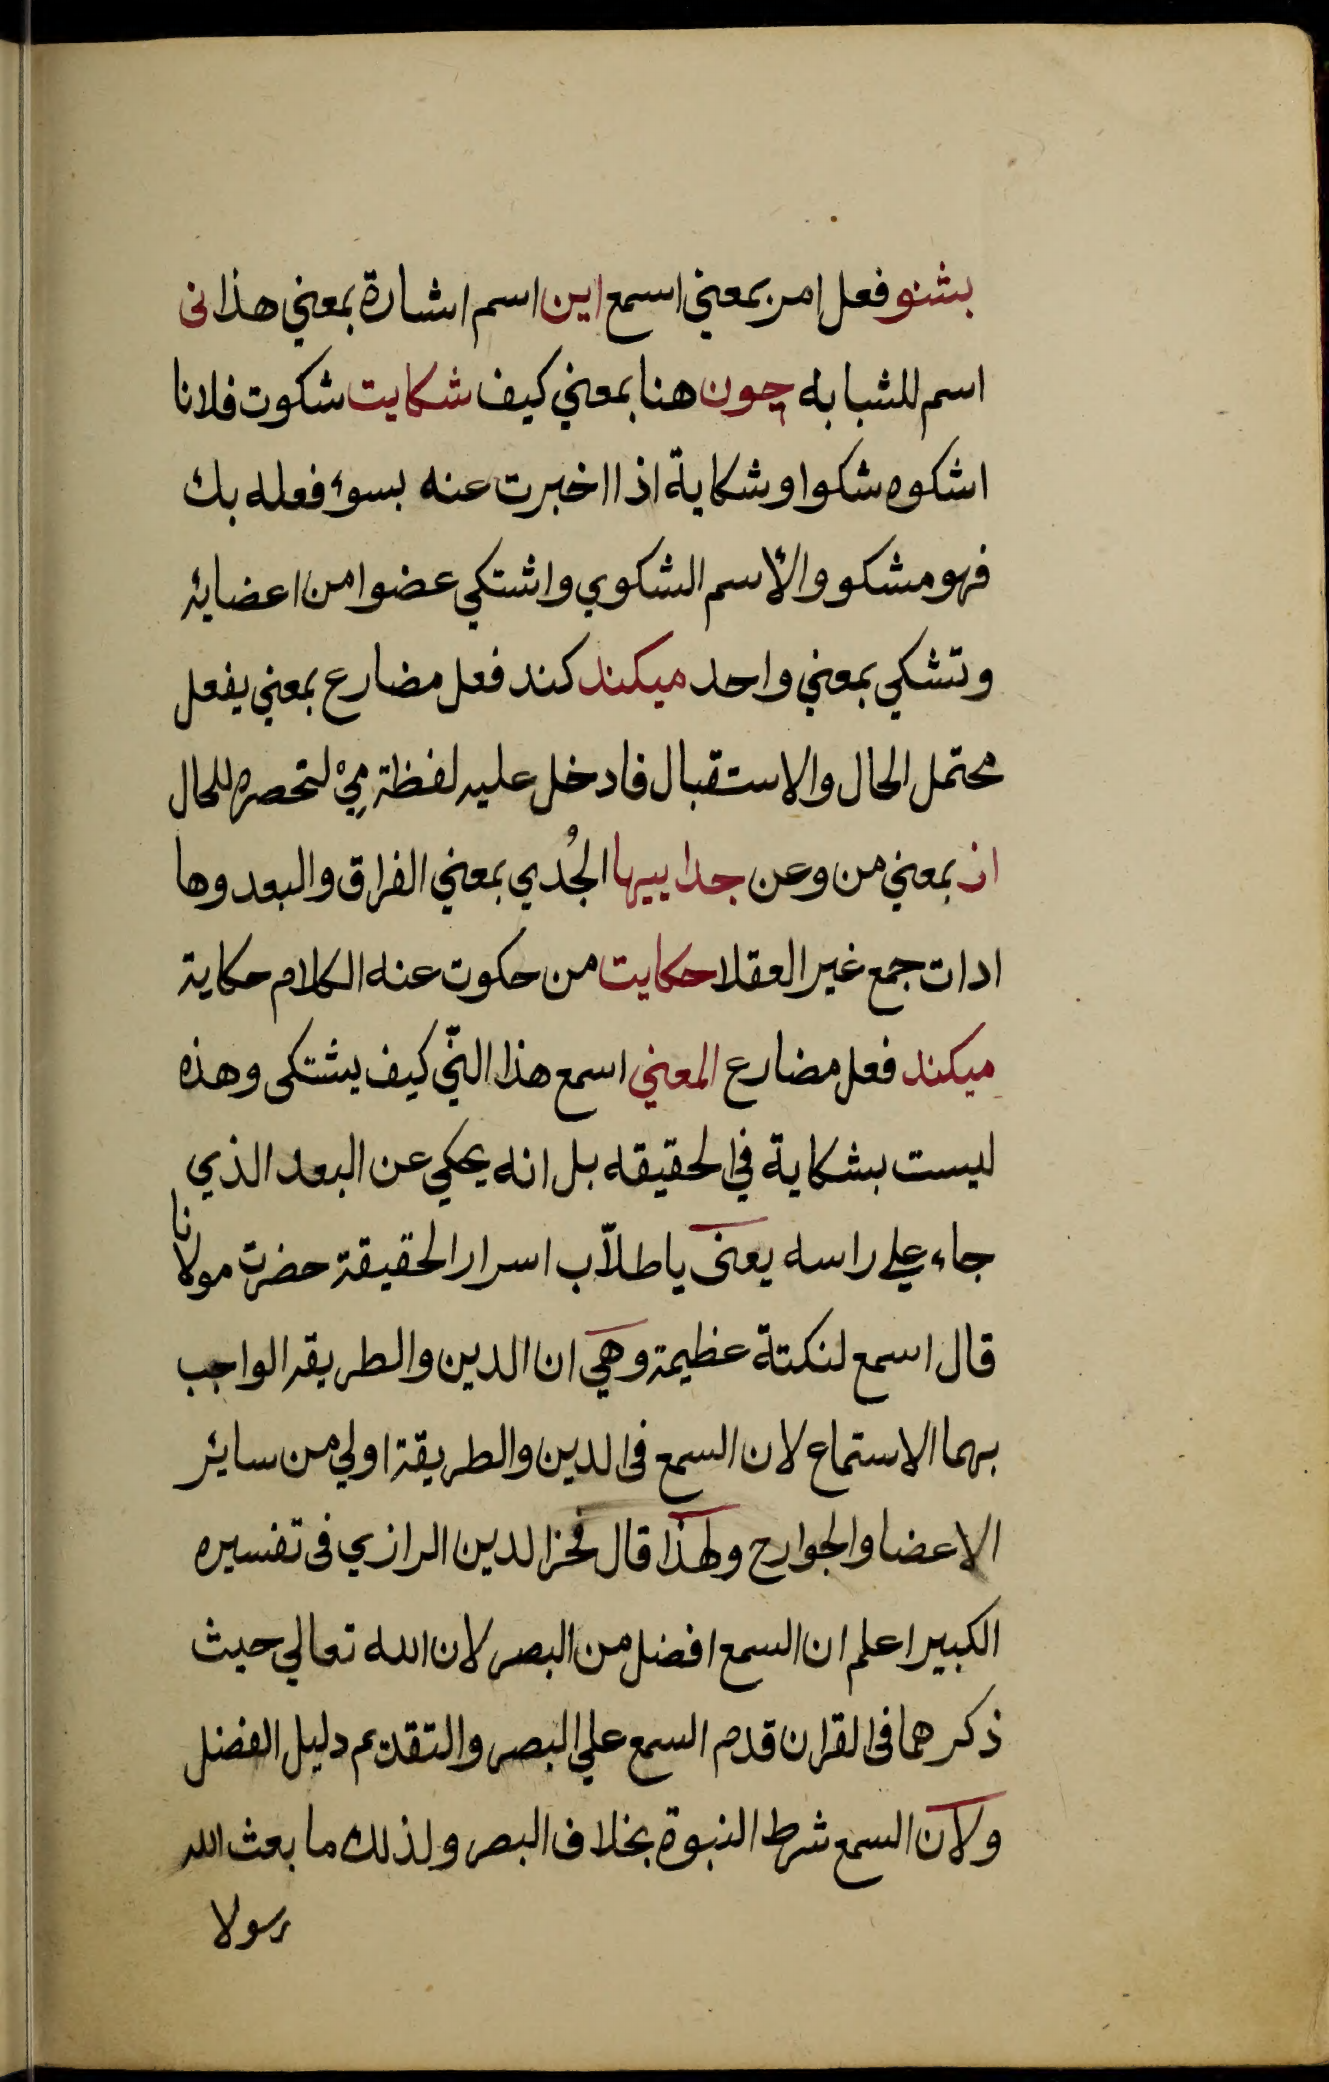 بشنو فعل امر بمعني اسمع اين اسم اشارة بمعني هذا نى
اسم للشبابه چون هنا بمعني كيف شكايت شكوت فلانا
اشكوه شكوا وشكاية اذا اخبرت عنه بسوء فعله بك
فهو مشكو والأسم الشكوي واشتكي عضوا من اعضايه
وتشكي بمعني واحد ميكند كند فعل مضارع بمعني يفعل
محتمل الحال والاستقبال فادخل عليه لفظة مِيْ لتحصره للحال
از بمعني من وعن جداييها الجُدي بمعني الفراق والبعد وها
ادات جمع غير العقلا حكايت من حكوت عنه الكلام حكاية
ميكند فعل مضارع المعني اسمع هذا النّي كيف يشتكى وهذه
ليست بشكاية في الحقيقه بل انه يحكي عن البعد الذي
جاء علي راسه يعنى يا طلّاب اسرار الحقيقة حضرت مولانا
قال اسمع لنكتة عظيمة وهي ان الدين والطريقه الواجب
بهما الاستماع لان السمع في الدين والطريقة اولي من سائر
الاعضا والجوارح ولهذا قال فخر الدين الرازي فى تفسيره
الكبير اعلم ان السمع افضل من البصر لان الله تعالي حيث
ذكرهما فى القران قدم السمع علي البصر والتقديم دليل الفضل
ولان السمع شرط النبوة بخلاف البصر ولذلك ما بعث الله
رسولا